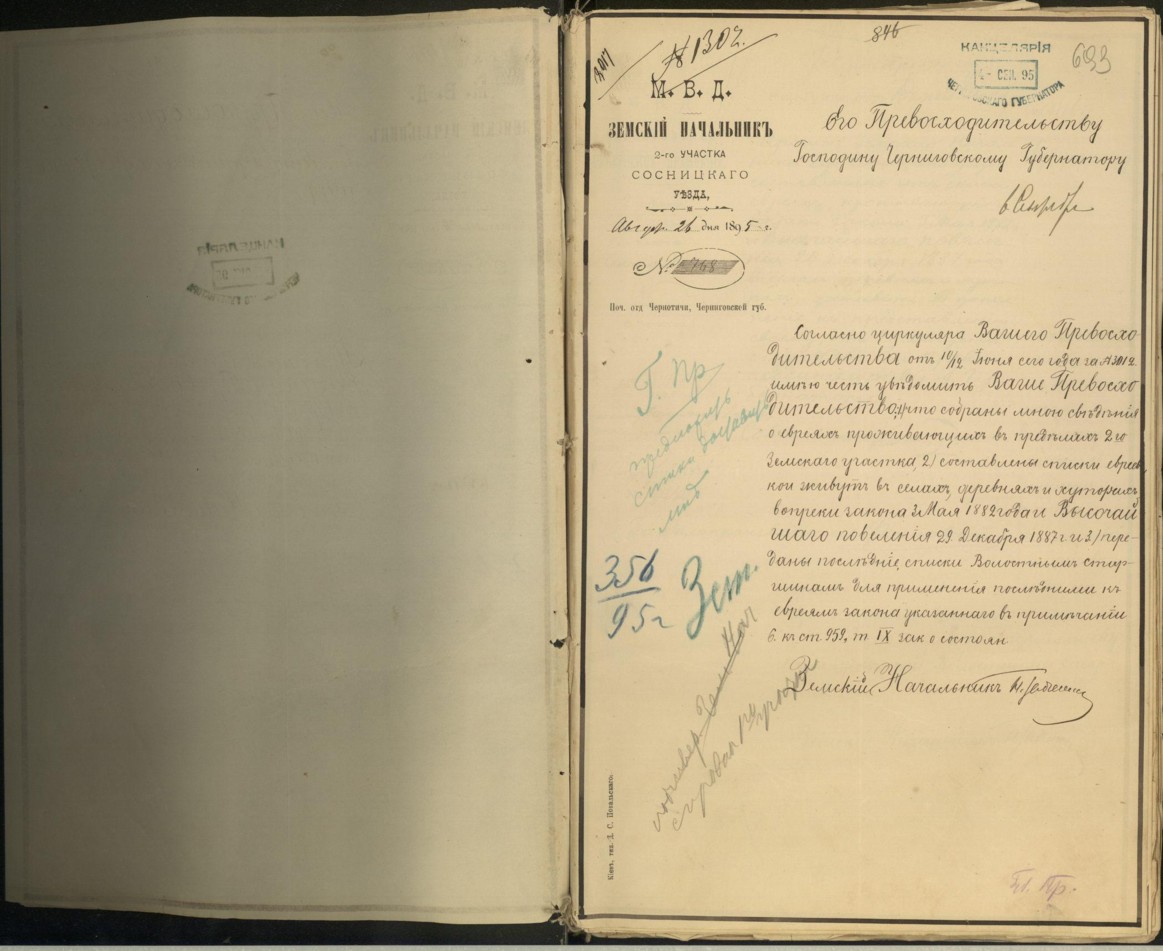 № 1302.
846
693
КАНЦЕЛЯРІЯ
СЕН. 95
ЧЕРНИГОВСКАГО ГУБЕРНАТОРА
М. В. Д.
ЗЕМСКІЙ НАЧАЛЬНИКЪ
2-го УЧАСТКА
СОСНИЦКАГО
УѢЗДА,
Август. 26 дня 1895 г.
№ 768
Поч. отд Чернотичи, Черниговской губ.
Его Превосходительству
Господину Черниговскому Губернатору
Согласно циркуляра Вашего Превосхо-
дительства отъ 10/12 Іюня сего года за №3012
имѣю честь увѣдомить Ваше Превосхо
дительство, 1/ что собраны мною свѣдѣнія
о евреяхъ проживающихъ въ предѣлахъ 2го
Земскаго участка, 2/ составлены списки евреевъ
кои живутъ въ селахъ, деревняхъ и хуторахъ
вопреки закона 3 Мая 1882 года и Высочай
шаго повеленія 29 Декабря 1887 г. и 3/ пере-
даны послѣдніе списки Волостнымъ стар-
шинамъ для примѣненія послѣдними къ
евреямъ закона указаннаго въ примѣчаніи
6. къ ст. 959, т IX зак о состоян
Земскій Начальникъ
Г. Пр
356
95 г
Зем.
Кіевъ, тип.
Гл. Пр.